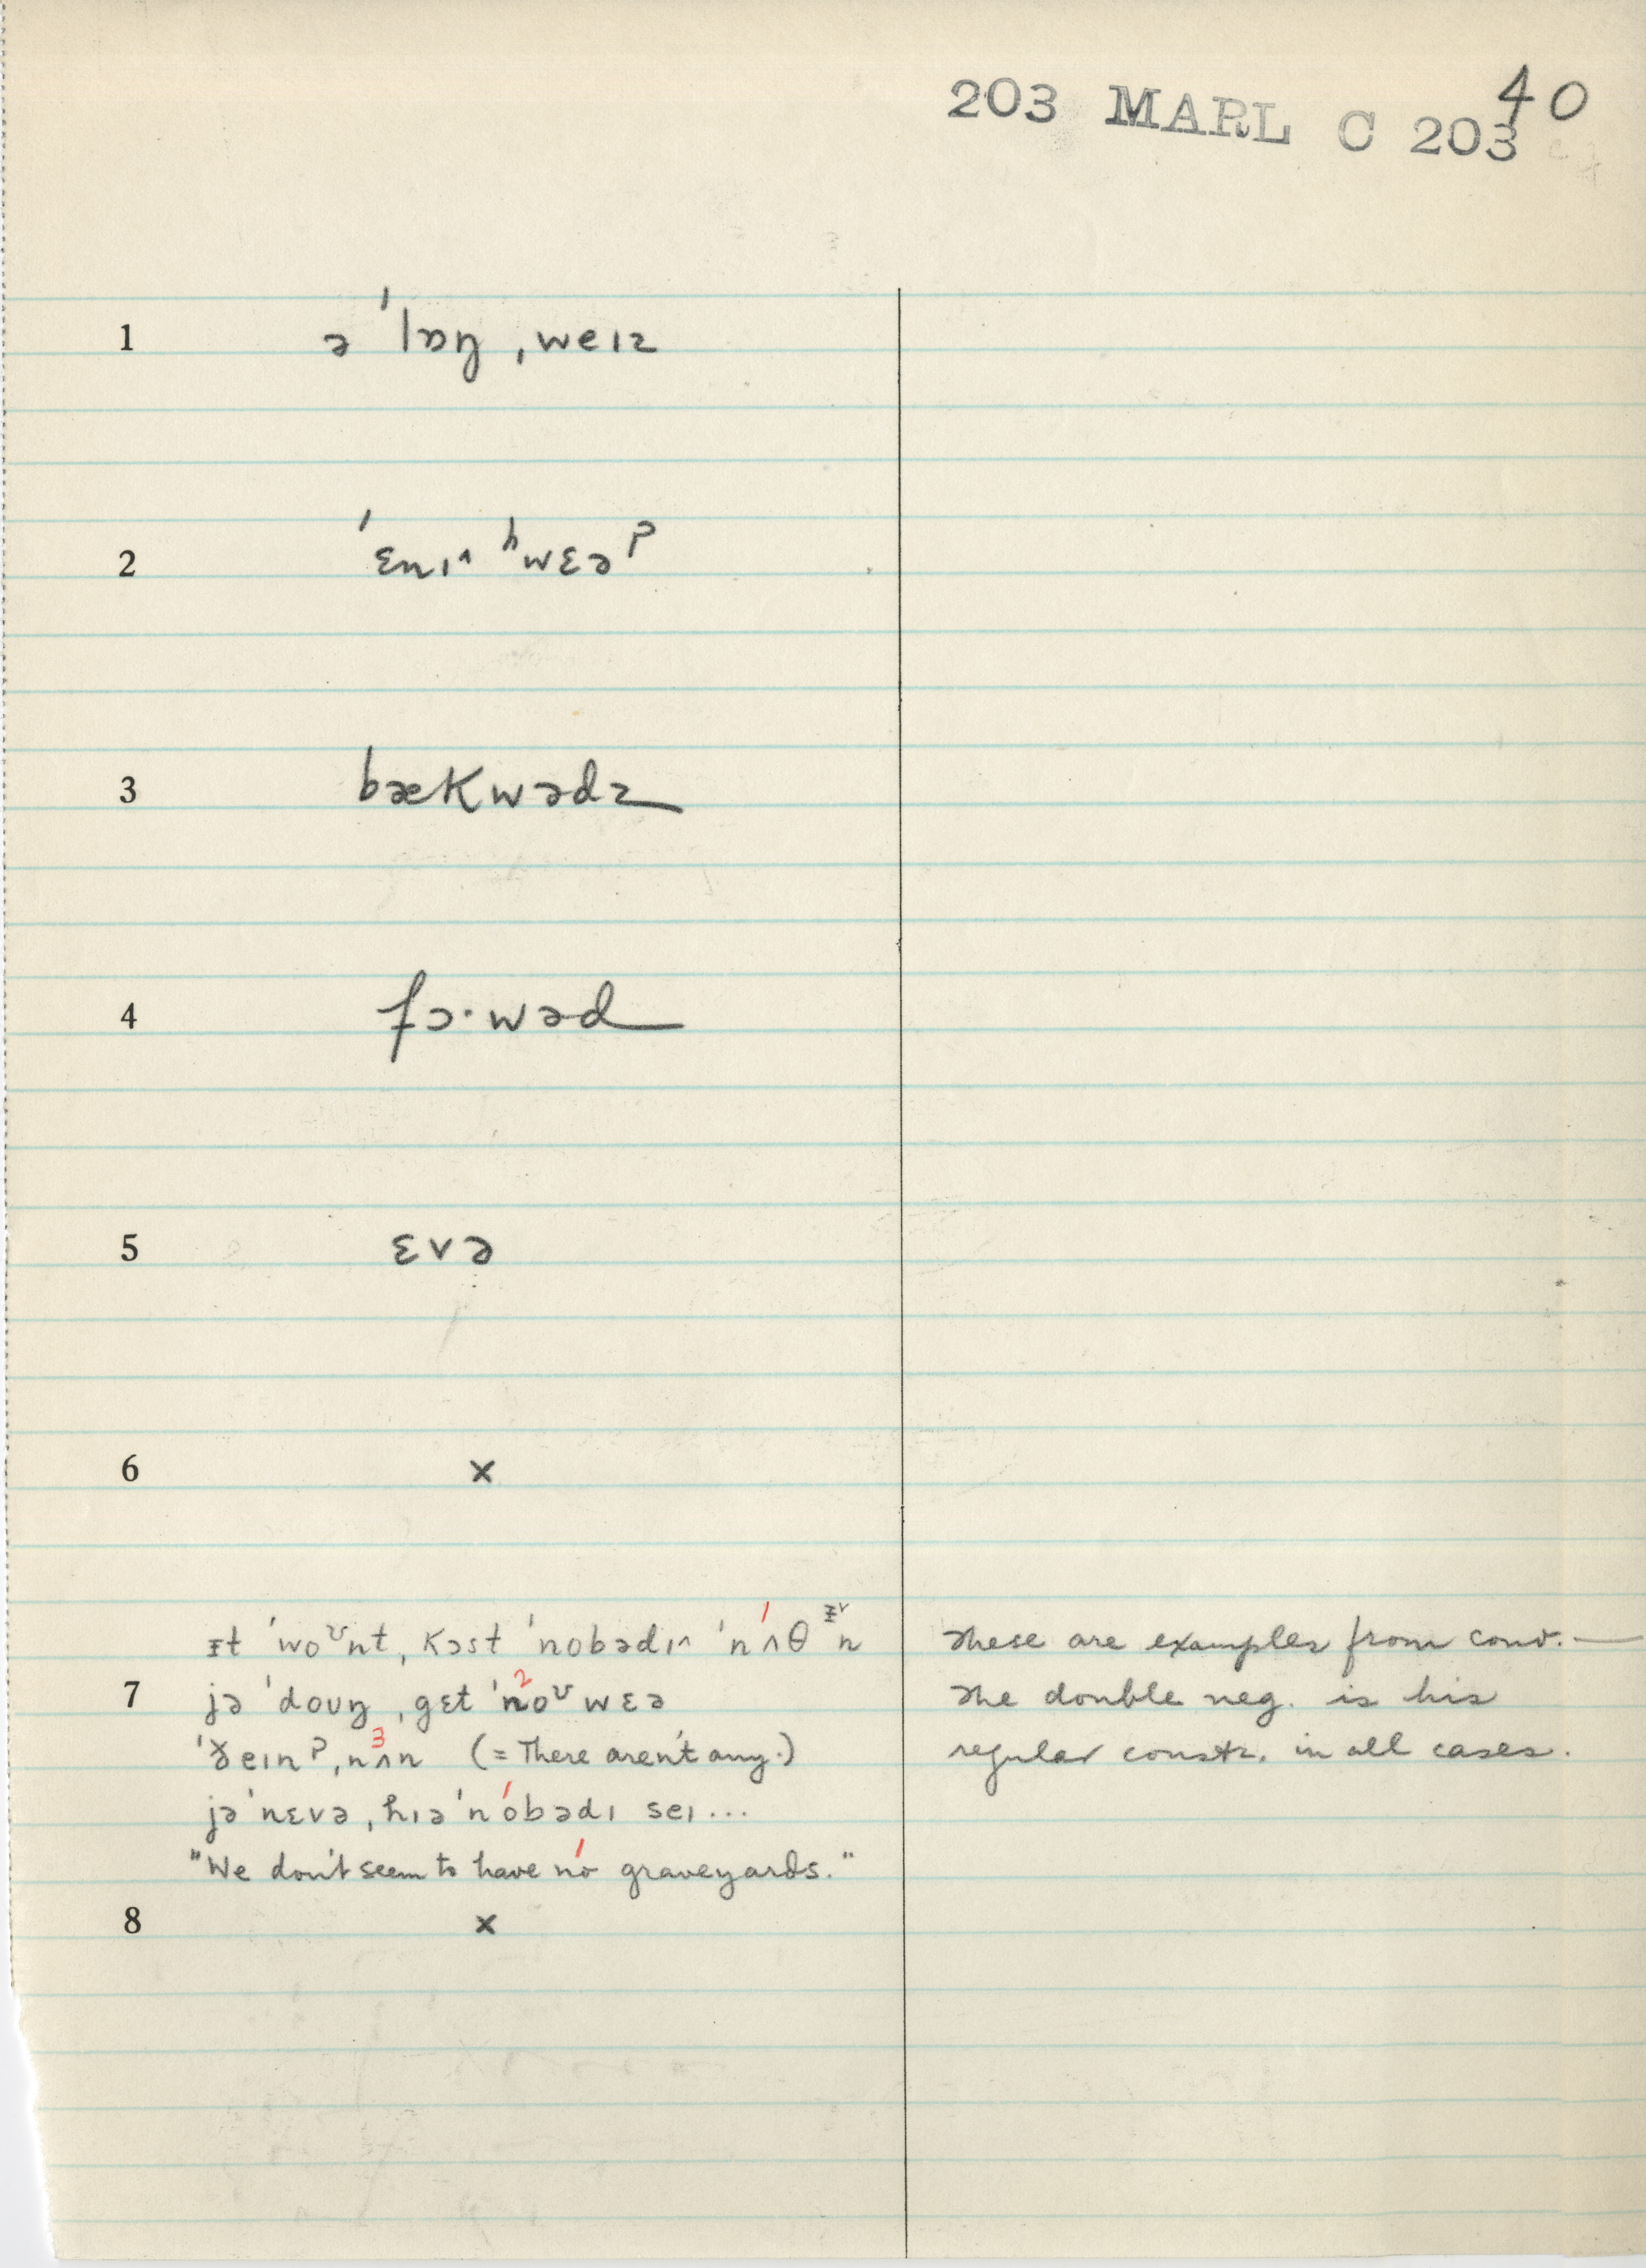 40
203 MARL C 203
1 ə ˈlɒŋ ˌweɪz
2 ˈɛnɪ^ ʰwɛəᵖ
3 bækwədz
4 fɔ·wəd
5 ɛvə
6 ×
ɪt ˈwoᶷnt ˌkɔst ˈnobədɪ^ ˈnʌθᶦᵛn
7 jə ˈdoʊŋ ˌgɛt ˈnoᶷwɛə
ˈðeɪnˀ ˌnʌn (= There aren't any.)
jə ˈnɛvə ˌhɪə ˈnobədɪ seɪ...
"We don't seem to have no graveyards."
8 ×
These are examples from conv. —
The double neg. is his
regular constr. in all cases.